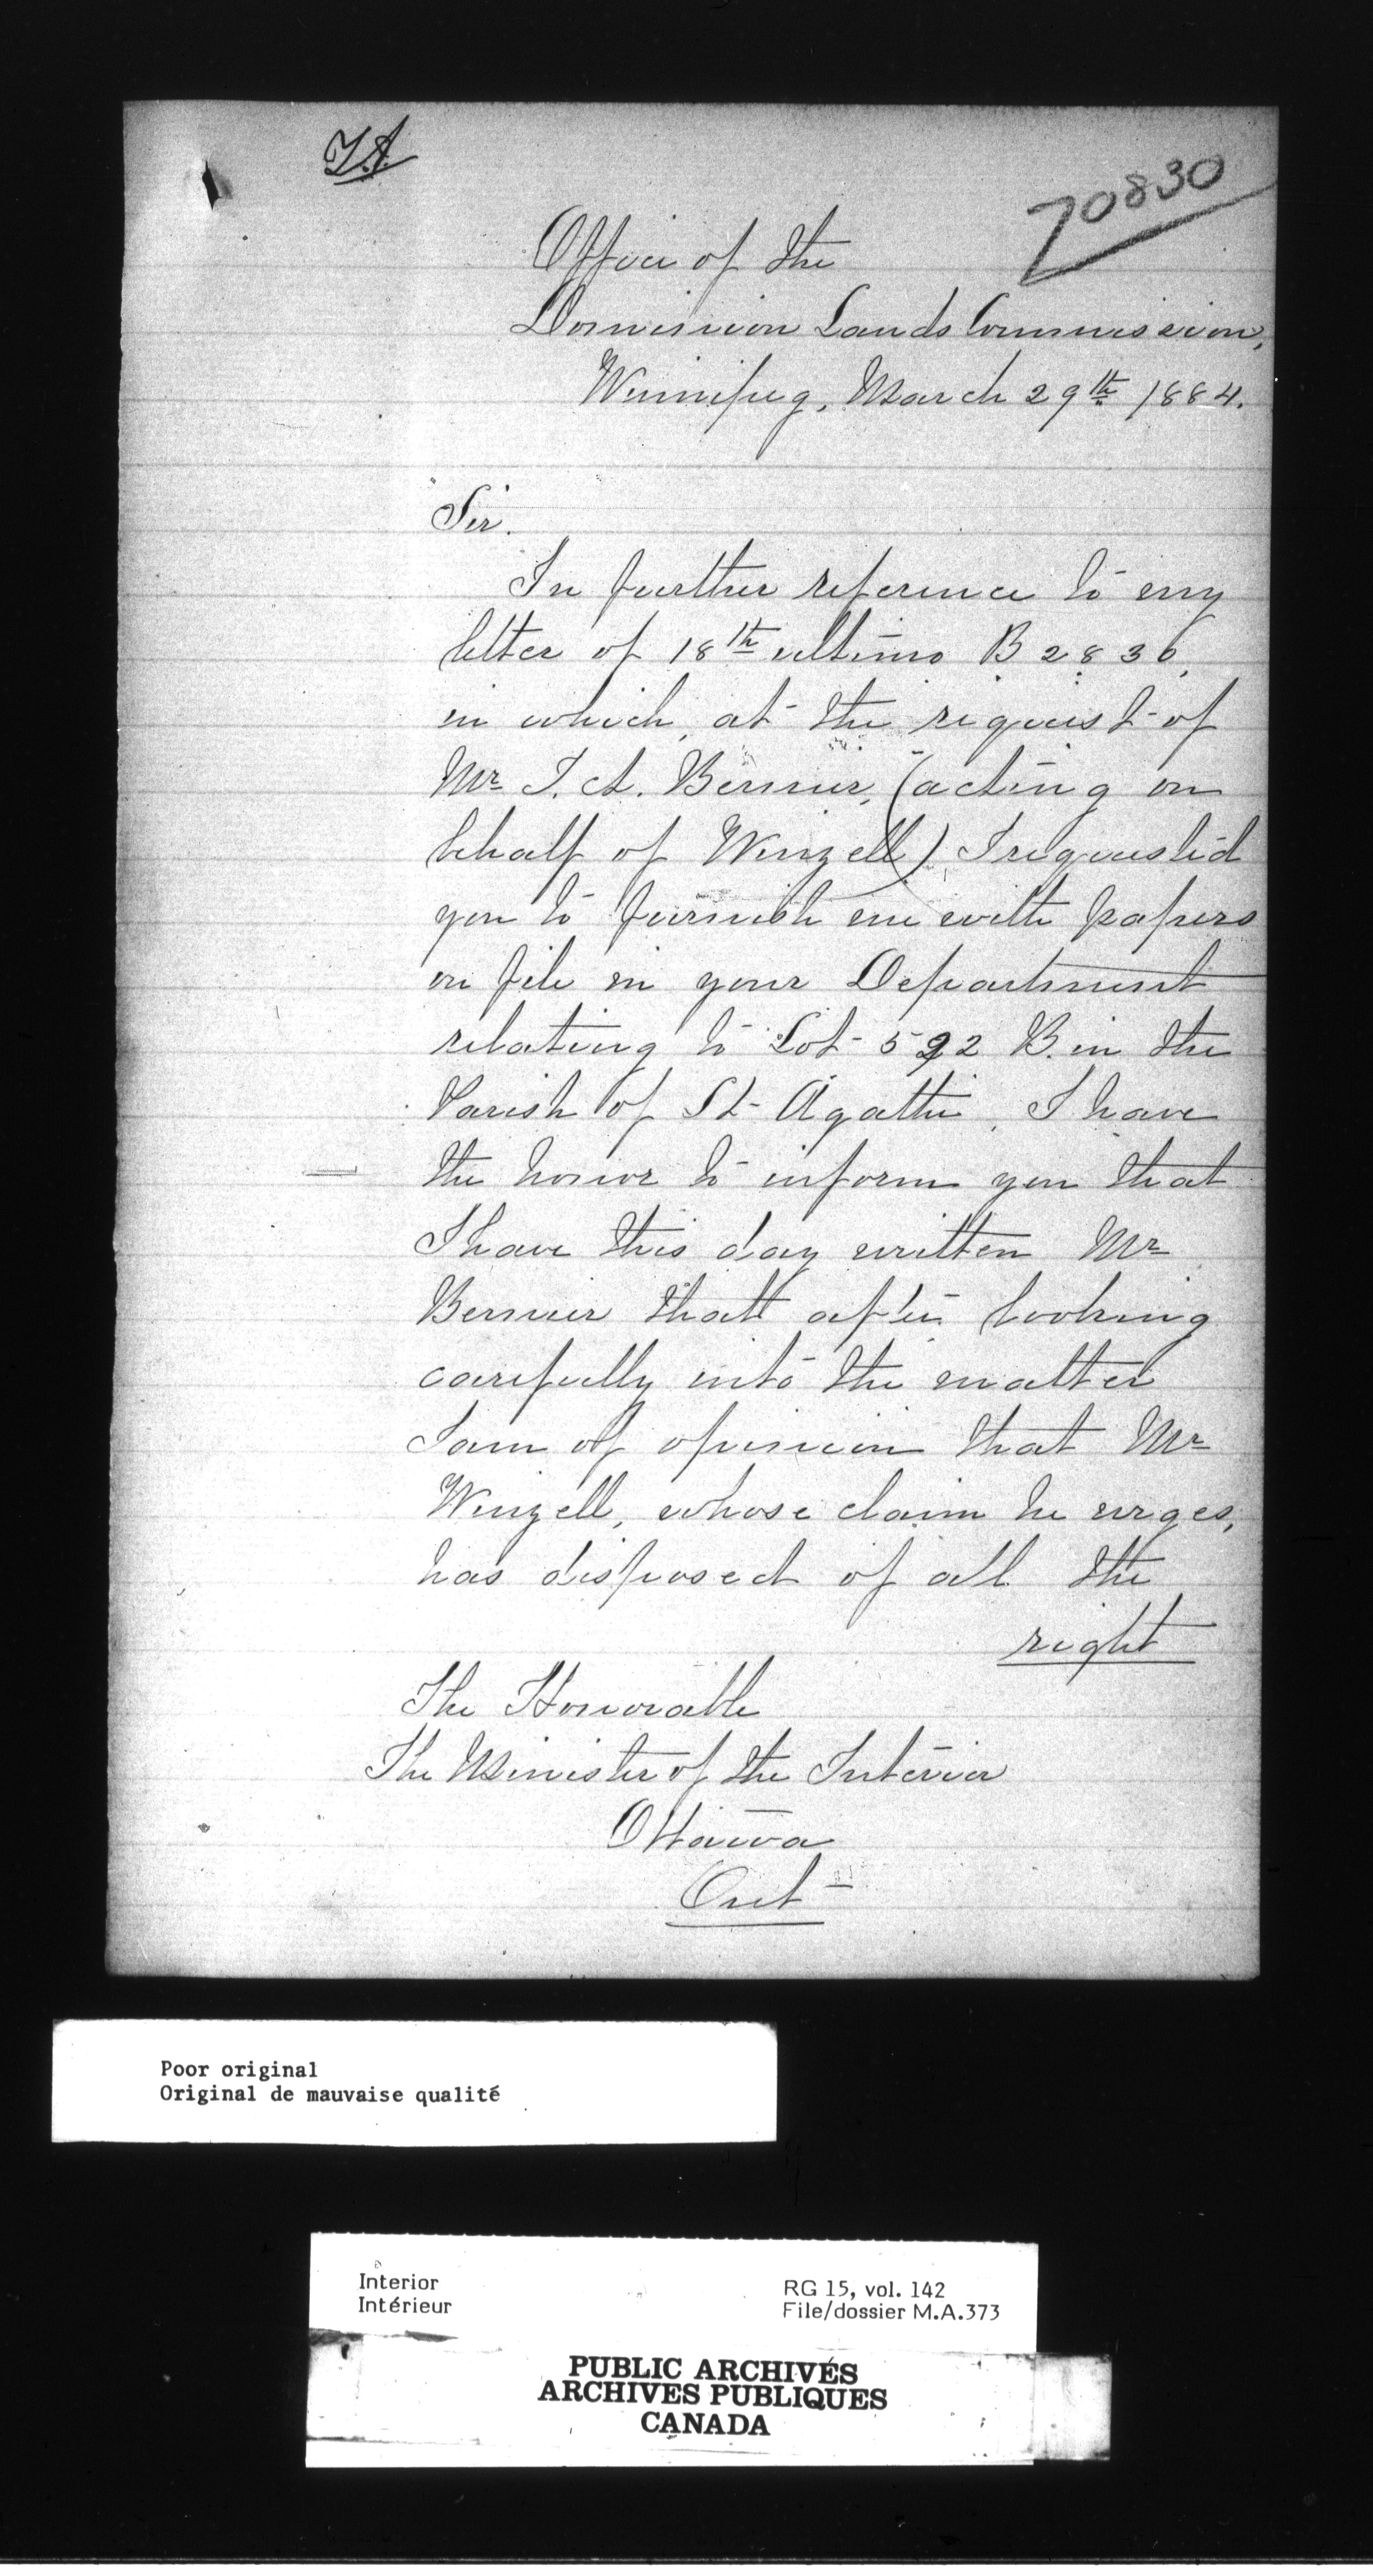 T.A.
70830
Office of the
Dominion Lands Commission,
Winnipeg, March 29th 1884.
Sir.
In further reference to my
letter of 18th ultimo B 2830,
in which, at the request of
Mr T. A. Bernier, (acting on
behalf of Winzell) I requested
you to furnish me with papers
on file in your Department
relating to Lot 592 B. in the
Parish of St Agathe, I have
the honor to inform you that
I have this day written Mr
Bernier that after looking
carefully into the matter
I am of opinion that Mr
Winzell, whose claim he urges,
has disposed of all the
right
The Honorable
The Minister of the Interior
Ottawa
Ont
Poor original
Original de mauvaise qualité
Interior
Intérieur
RG 15, vol. 142
File/dossier M.A.373
PUBLIC ARCHIVES
ARCHIVES PUBLIQUES
CANADA